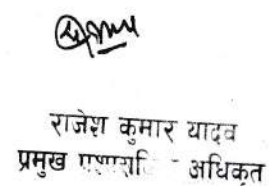 राजेश कुमार यादव
प्रमुख अधिकृत